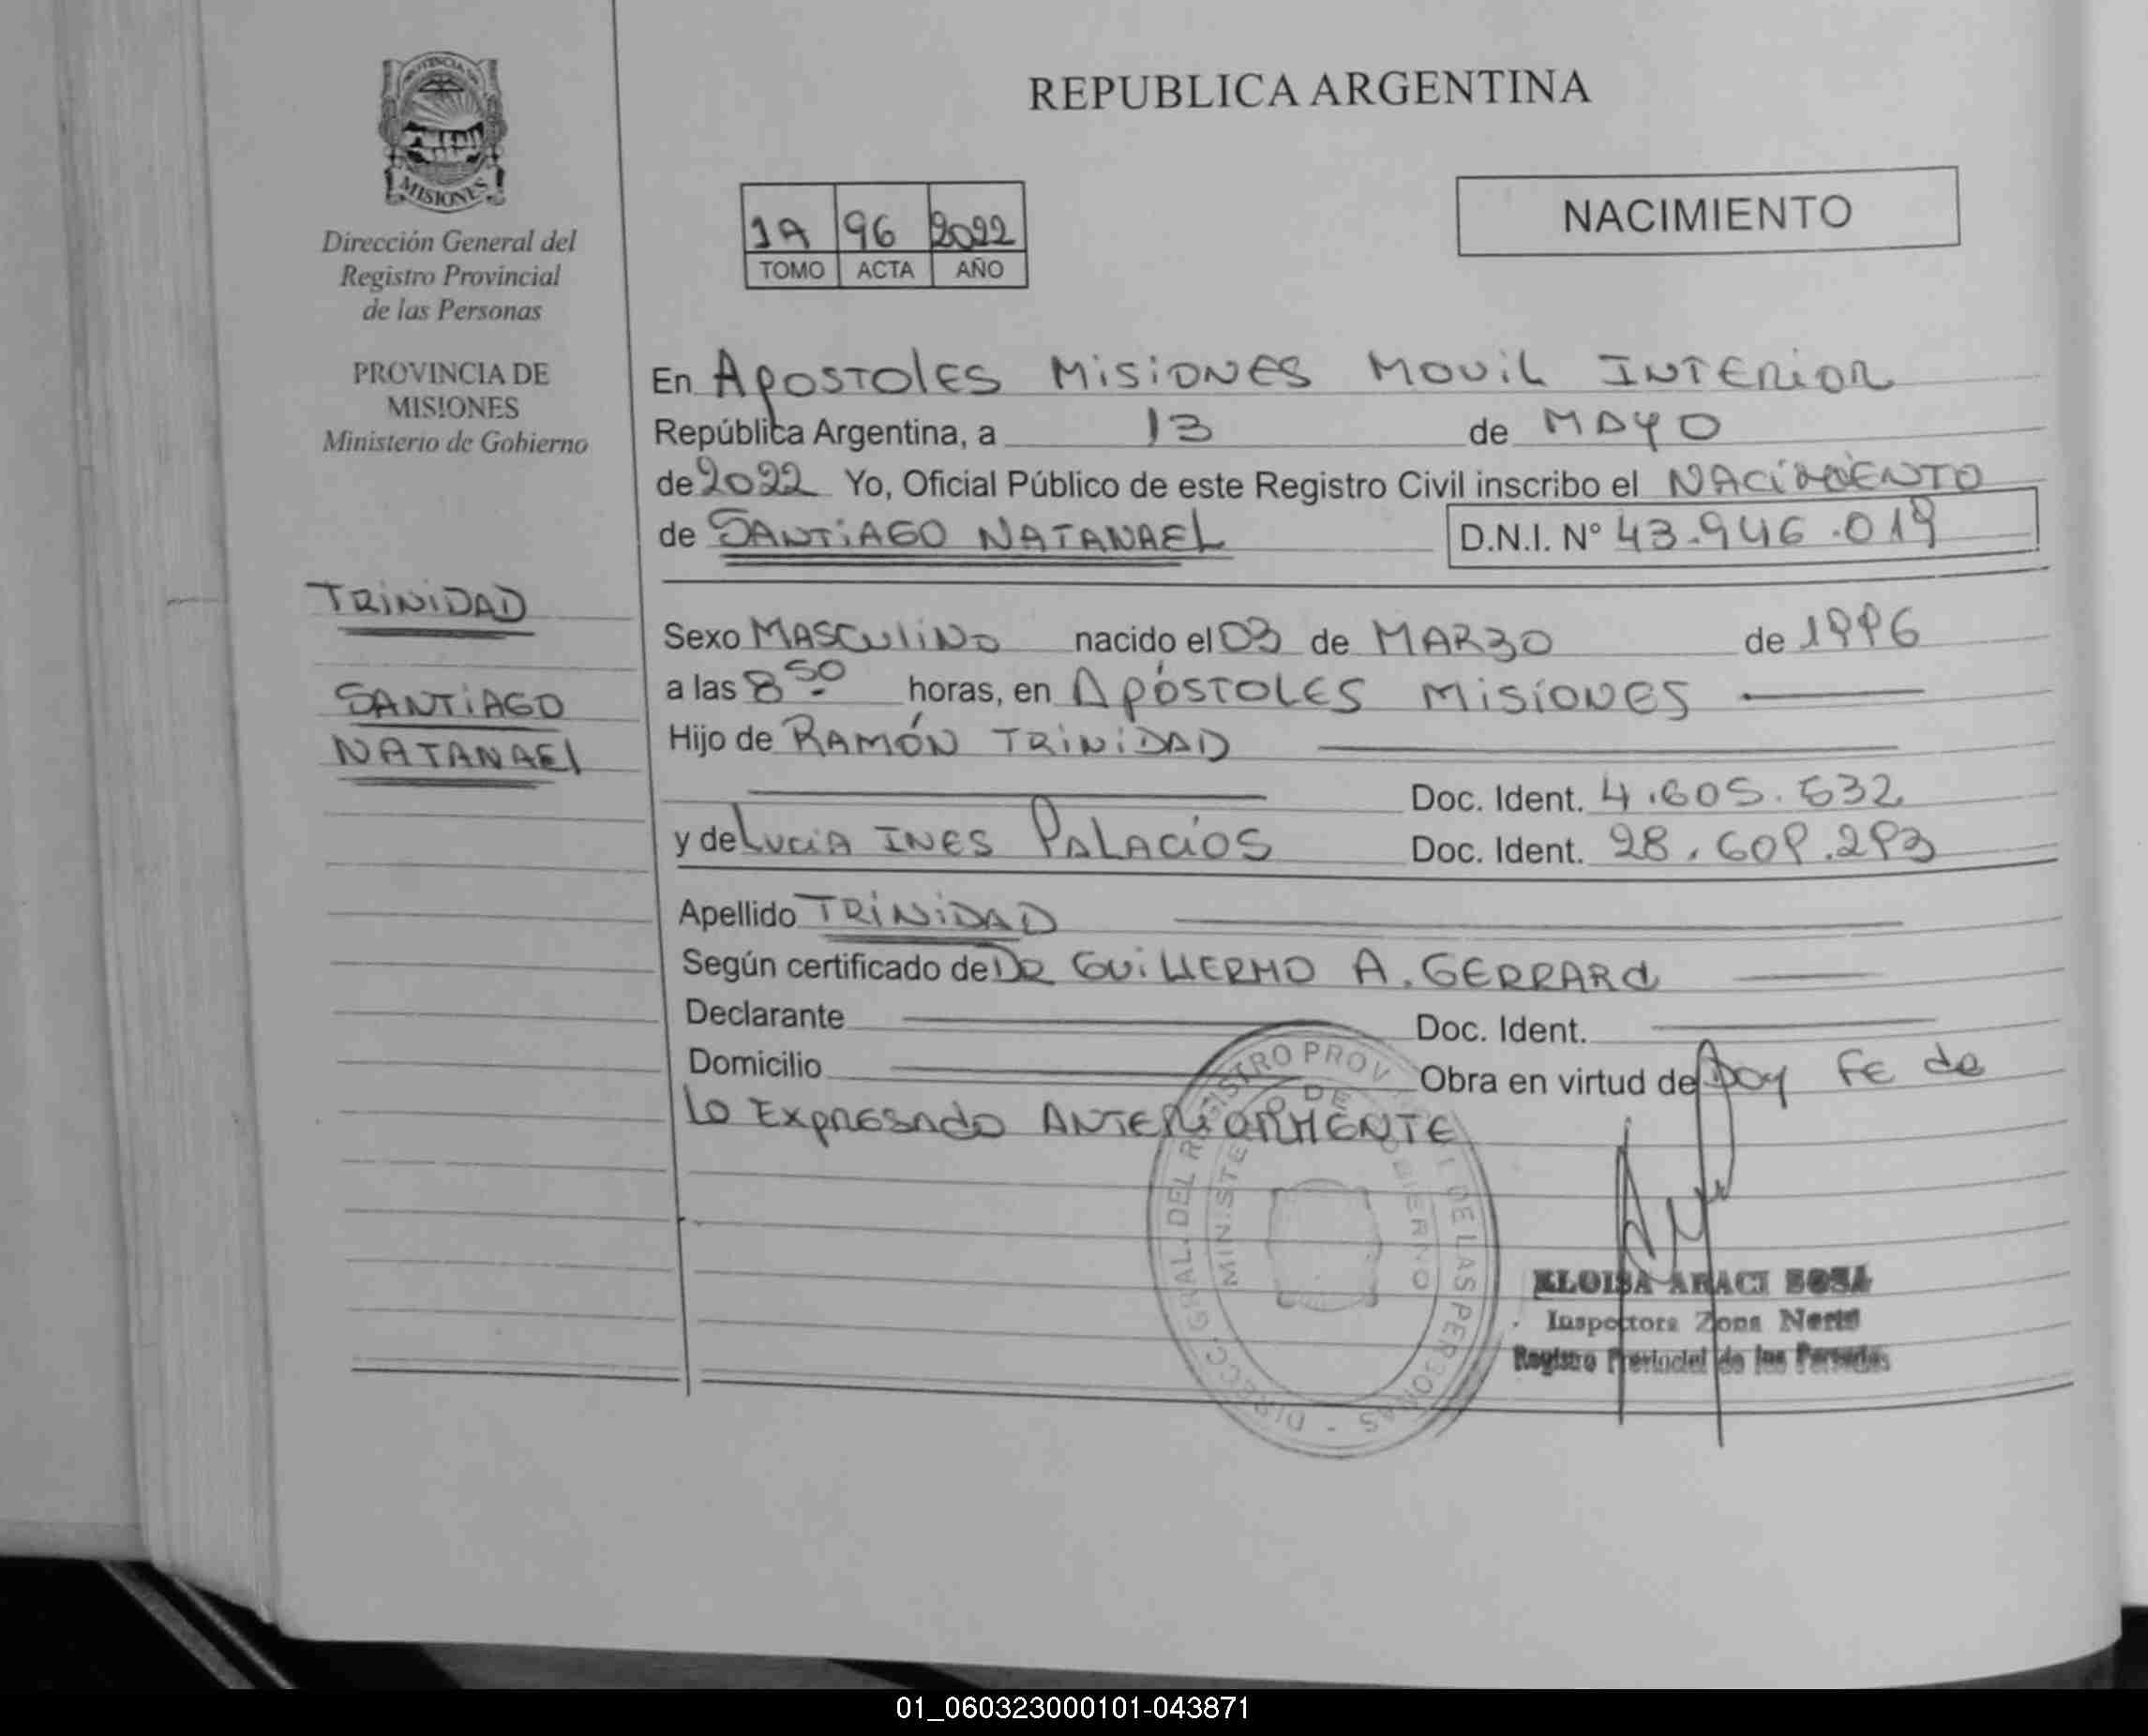 PROVINCIA DE
MISIONES
Dirección General del
Registro Provincial
de las Personas
PROVINCIA DE
MISIONES
Ministerio de Gobierno
TRINIDAD
SANTIAGO
NATANAEl
REPUBLICA ARGENTINA
1A 96 2022
TOMO ACTA AÑO
NACIMIENTO
En APOSTOlES MISIONES MOVIL INTERIOR
República Argentina, a 13 de MAYO
de 2022 Yo, Oficial Público de este Registro Civil inscribo el NACIMIENTO
de SANTIAGO NATANAEL D.N.I. N° 43.946.019
Sexo MASCULINO nacido el 03 de MARZO de 1996
a las 8 50 horas, en APÓSTOLES MISIONES
Hijo de RAMÓN TRINIDAD
Doc. Ident. 4.605.632
y de LUCIA INES PALACIOS Doc. Ident. 28.609.293
Apellido TRINIDAD
Según certificado de DR GUILLERMO A. GERRARd
Declarante Doc. Ident.
Domicilio Obra en virtud de Doy FE de
Lo EXPRESADO ANTERIORMENTE
DIRECC. GRAL. DEL REGISTRO PROVINCIAL DE LAS PERSONAS
MINISTERIO DE GOBIERNO
ELOISA ARACI SOSA
Inspectora Zona Norte
Registro Provincial de las Personas
01_060323000101-043871